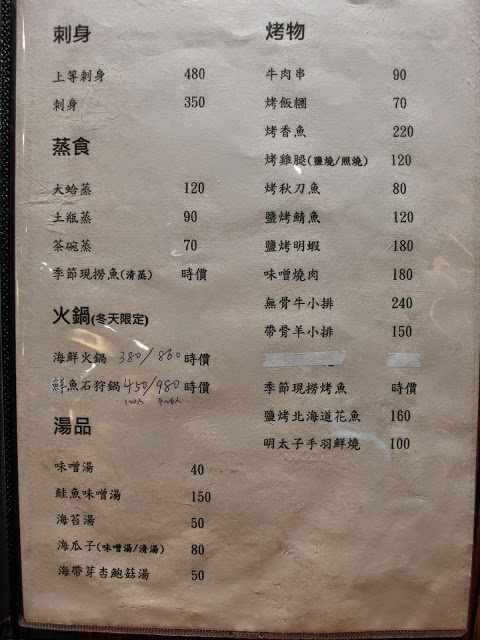 刺身
上等刺身 480
刺身 350
蒸食
大蛤蒸 120
土瓶蒸 90
茶碗蒸 70
季節現撈魚(清蒸) 時價
火鍋(冬天限定)
海鮮火鍋 380/860 時價
鮮魚石狩鍋 450/980 時價
湯品
味噌湯 40
鮭魚味噌湯 150
海苔湯 50
海瓜子(味噌湯/清湯) 80
海帶芽杏鮑菇湯 50
烤物
牛肉串 90
烤飯糰 70
烤香魚 220
烤雞腿(鹽燒/照燒) 120
烤秋刀魚 80
鹽烤鯖魚 120
鹽烤明蝦 180
味噌燒肉 180
無骨牛小排 240
帶骨羊小排 150
季節現撈烤魚 時價
鹽烤北海道花魚 160
明太子手羽鮮燒 100